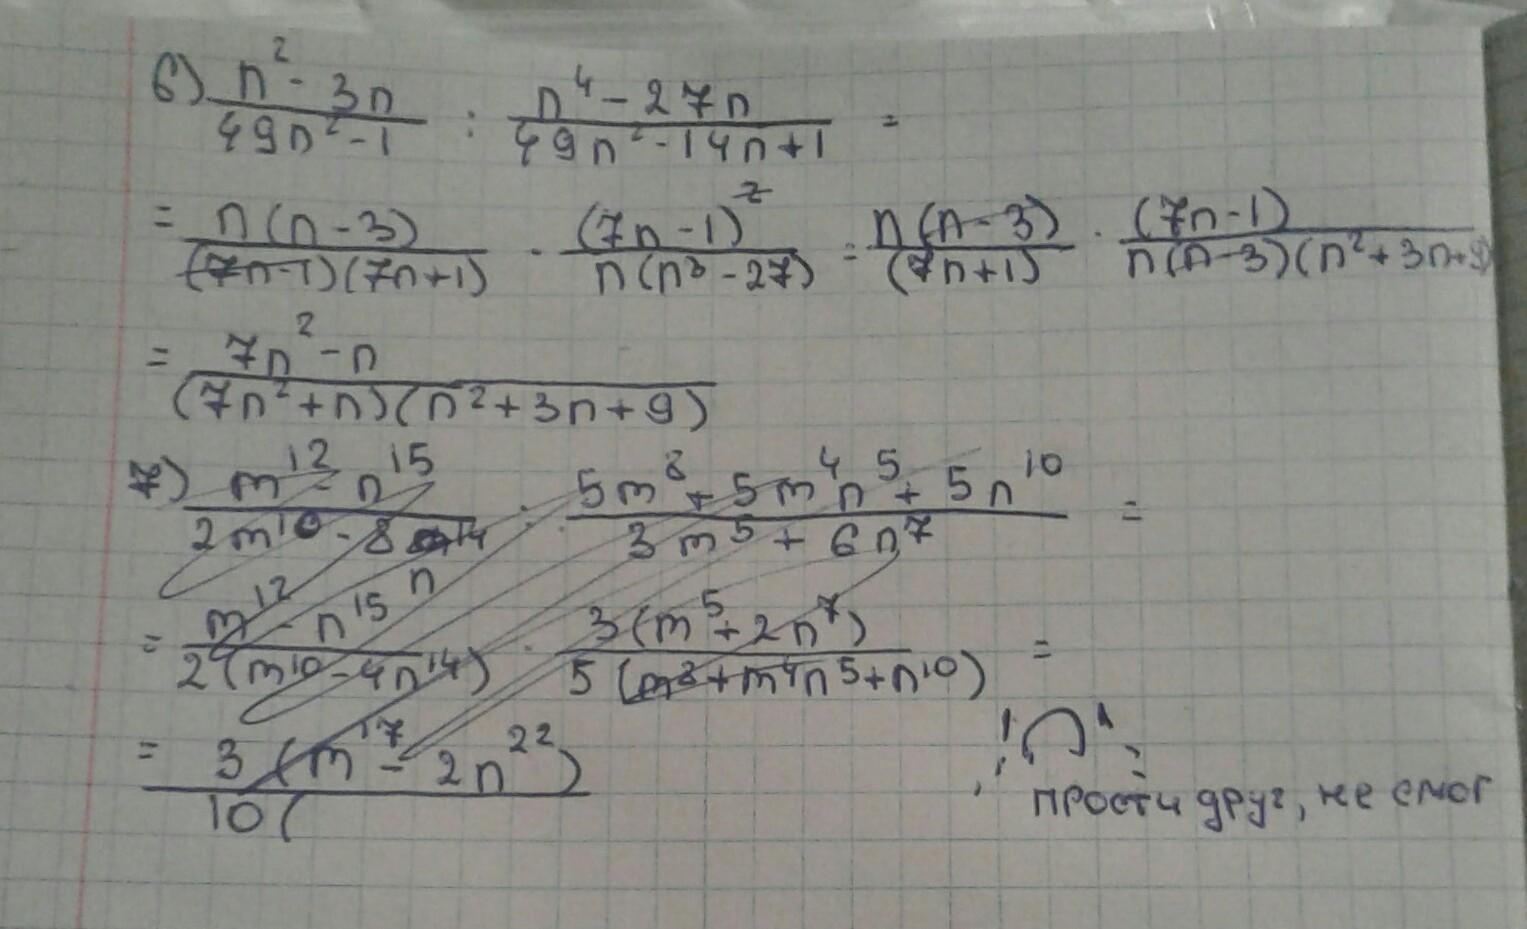 6) n² - 3n / 49n² - 1 : n⁴ - 27n / 49n² - 14n + 1 =
= n(n - 3) / (7n - 1)(7n + 1) · (7n - 1)² / n(n³ - 27) = n(n - 3) / (7n + 1) · (7n - 1) / n(n - 3)(n² + 3n + 9)
= 7n² - n / (7n² + n)(n² + 3n + 9)
7) m¹² - n¹⁵ / 2m¹⁰ - 8n¹⁴ : 5m⁸ + 5m⁴n⁵ + 5n¹⁰ / 3m⁵ + 6n⁷ =
= m¹² - n¹⁵ / 2(m¹⁰ - 4n¹⁴) · 3(m⁵ + 2n⁷) / 5(m⁸ + m⁴n⁵ + n¹⁰) =
= 3(m¹⁷ - 2n²²) / 10(
прости друг, не смог